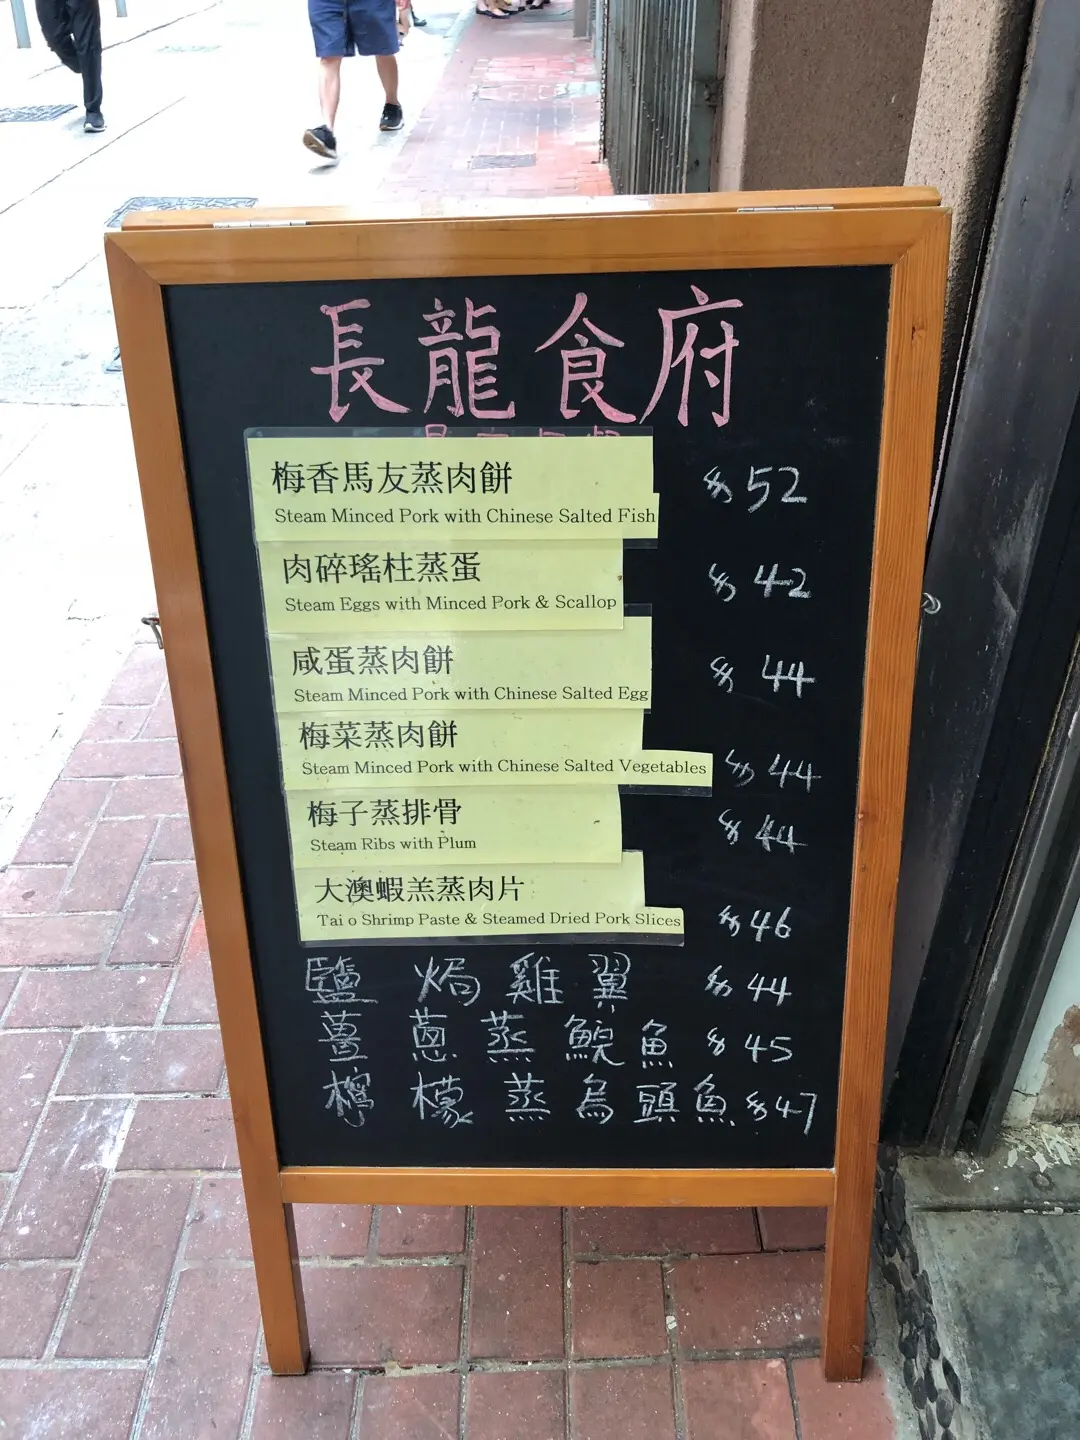 長龍食府
梅香馬友蒸肉餅 $52
Steam Minced Pork with Chinese Salted Fish
肉碎瑤柱蒸蛋 $42
Steam Eggs with Minced Pork & Scallop
咸蛋蒸肉餅 $44
Steam Minced Pork with Chinese Salted Egg
梅菜蒸肉餅 $44
Steam Minced Pork with Chinese Salted Vegetables
梅子蒸排骨 $44
Steam Ribs with Plum
大澳蝦羔蒸肉片 $46
Tai o Shrimp Paste & Steamed Dried Pork Slices
鹽焗雞翼 $44
薑蔥蒸鯇魚 $45
檸檬蒸烏頭魚 $47